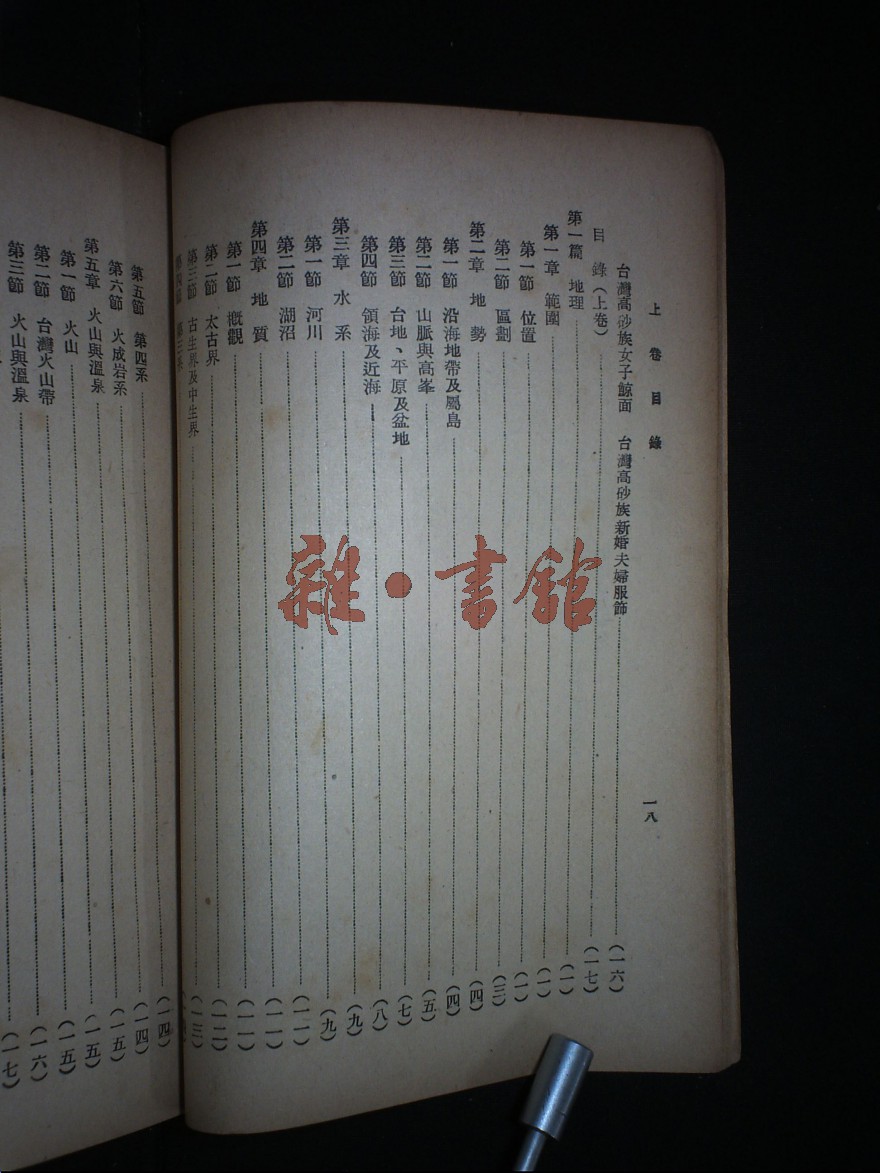 上卷目錄
一八
台灣高砂族女子鯨面 台灣高砂族新婚夫婦服飾……(一六)
目錄(上卷)……(一七)
第一篇 地理……(一)
第一章 範圍……(一)
第一節 位置……(一)
第二節 區劃……(三)
第二章 地勢……(四)
第一節 沿海地帶及屬島……(四)
第二節 山脈與高峯……(五)
第三節 台地、平原及盆地……(七)
第四節 領海及近海……(八)
第三章 水系……(九)
第一節 河川……(九)
第二節 湖沼……(一一)
第四章 地質……(一一)
第一節 概觀……(一一)
第二節 太古界……(一二)
第三節 古生界及中生界……(一三)
第四節 第三系
第五節 第四系……(一四)
第六節 火成岩系……(一四)
第五章 火山與溫泉……(一五)
第一節 火山……(一五)
第二節 台灣火山帶……(一五)
第三節 火山與溫泉……(一六)
(一七)
雜·書館